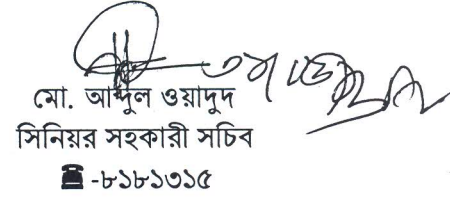 মো. আব্দুল ওয়াদুদ
সিনিয়র সহকারী সচিব
☎-৮১৮১৩১৫